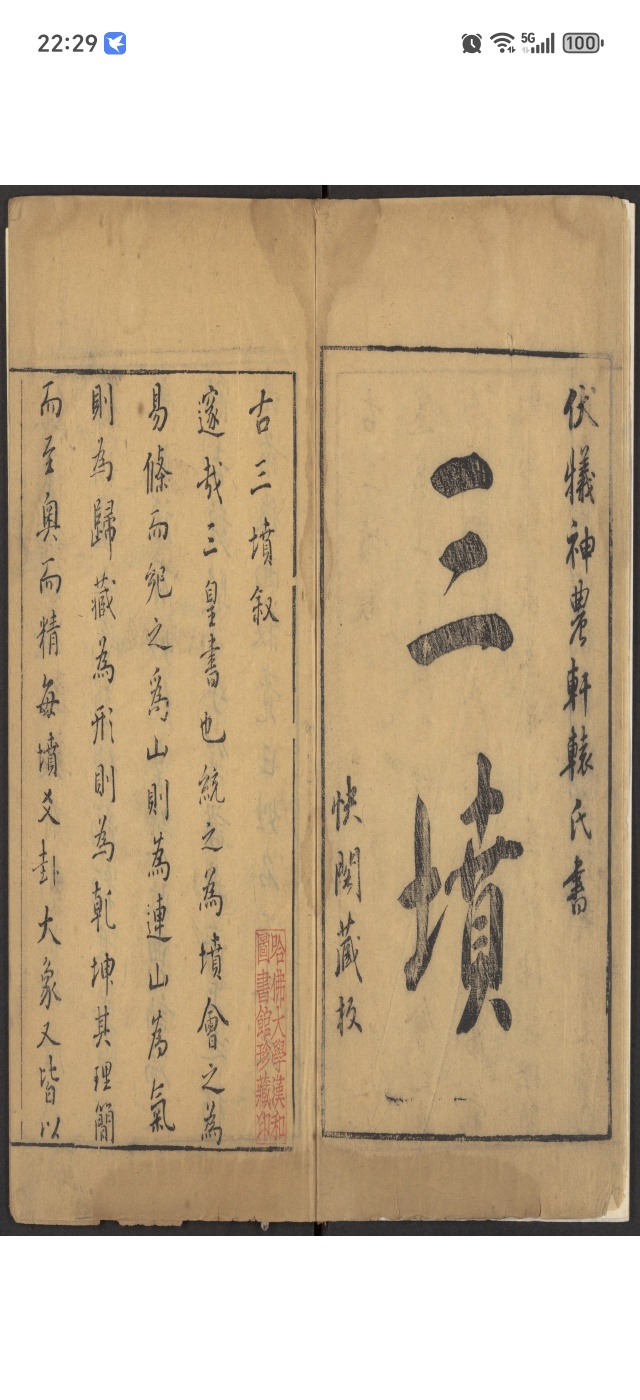 22:29
5G
100
伏犧神農軒轅氏書
三墳
快閣藏板
古三墳叙
邃哉三皇書也統之為墳會之為
易條而䂓之為山則為連山為氣
則為歸藏為形則為乾坤其理簡
而至奧而精每墳爻卦大象又皆以
哈佛大學漢和
圖書館珍藏印